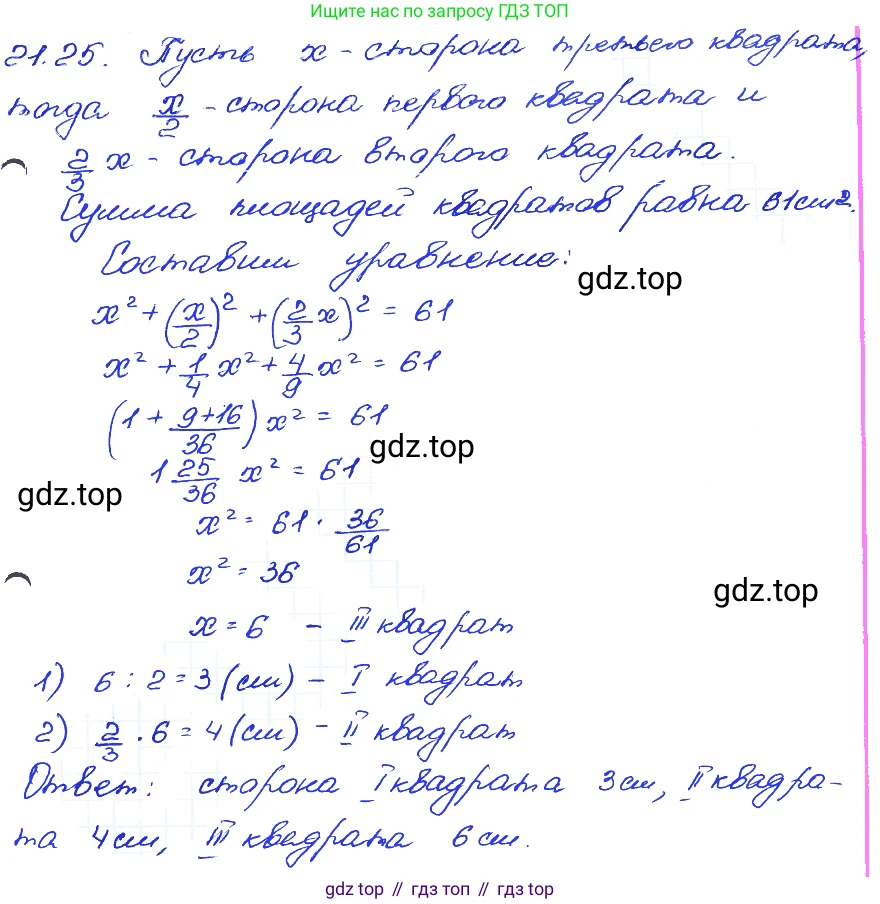 Ищите нас по запросу ГДЗ ТОП
21.25. Пусть x - сторона третьего квадрата,
тогда x/2 - сторона первого квадрата и
2/3 x - сторона второго квадрата.
Сумма площадей квадратов равна 61см².
Составим уравнение:
gdz.top
x² + (x/2)² + (2/3 x)² = 61
x² + 1/4 x² + 4/9 x² = 61
(1 + 9+16/36) x² = 61
gdz.top
1 25/36 x² = 61
gdz.top
x² = 61 · 36/61
x² = 36
gdz.top
x = 6 - III квадрат
1) 6 : 2 = 3 (см) - I квадрат
2) 2/3 · 6 = 4 (см) - II квадрат
Ответ: сторона I квадрата 3 см, II квадра-
та 4 см, III квадрата 6 см.
gdz top // гдз топ // gdz top